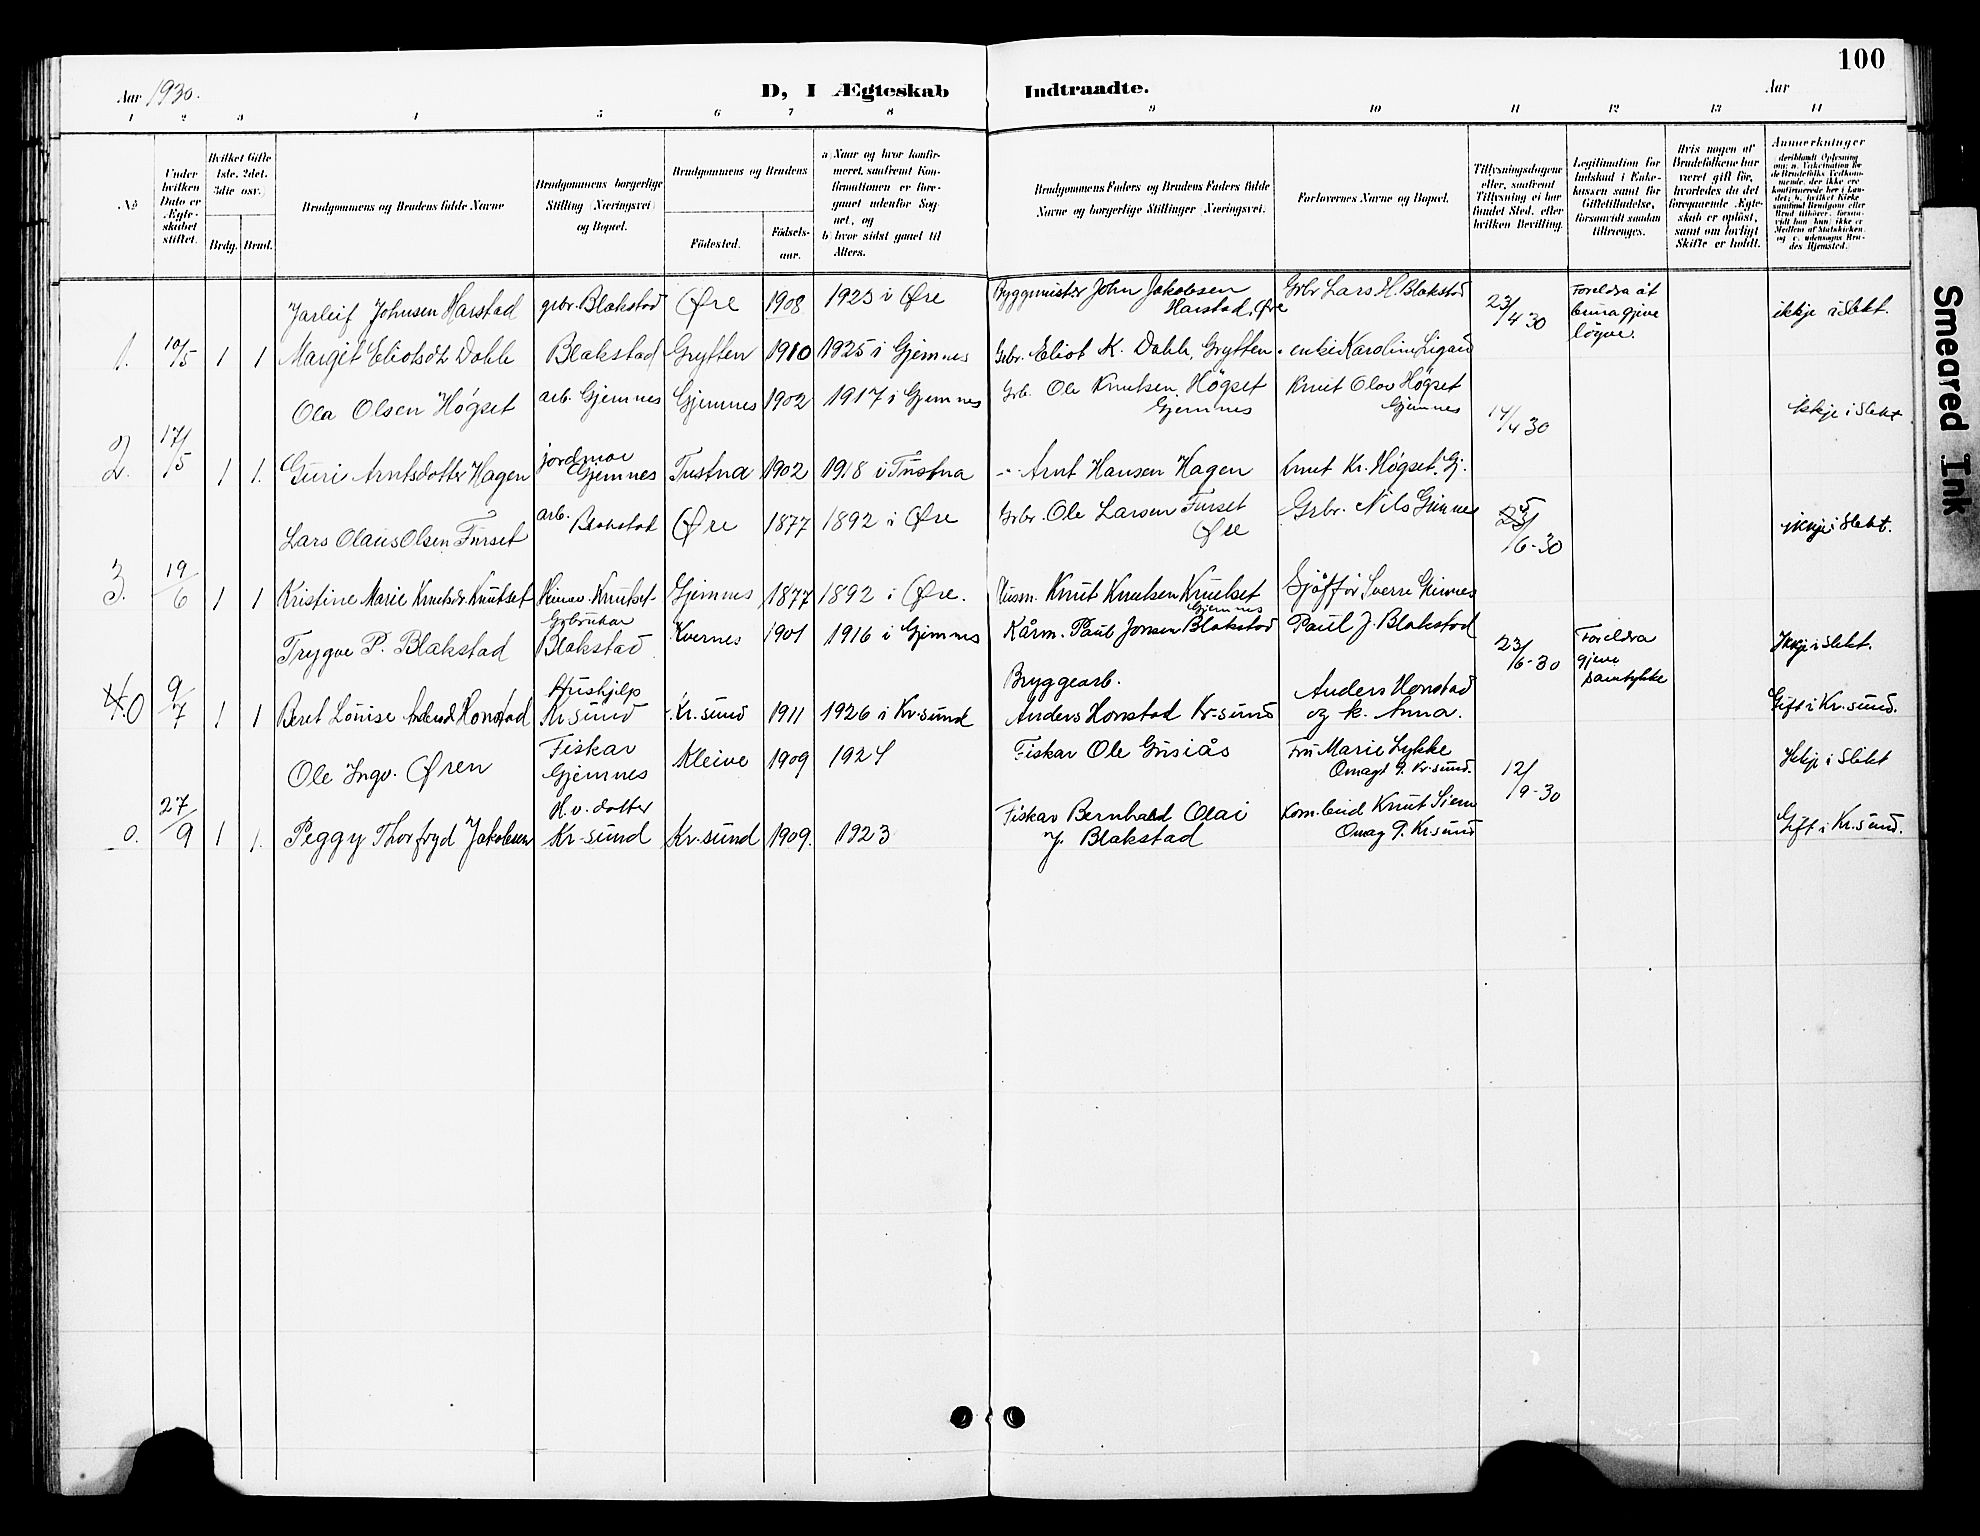 100
Aar 1930.
D, I Ægteskab Indtraadte.
Aar
1 2 3 4 5 6 7 8 9 10 11 12 13 14
№
Under hvilken Dato er Ægteskabet stiftet.
Hvilket Gifte 1ste, 2det, 3die osv.
Brdg. Brud.
Brudgommens og Brudens fulde Navne
Brudgommens borgerlige Stilling (Næringsvei) og Bopæl.
Brudgommens og Brudens
Fødested.
Fødselsaar.
a) Naar og hvor konfirmeret, samfremt Konfirmationen er foregaaet udenfor Sognet, og
b) hvor sidst gaaet til Alters.
Brudgommens Faders og Brudens Faders fulde Navne og borgerlige Stillinger (Næringsvei).
Forlovernes Navne og Bopæl.
Tillysningsdagene eller, saafremt Tillysning ei har fundet Sted, efter hvilken Bevilling.
Legitimation for Indskud i Enkekassen samt for Giftetilladelse, forsaavidt saadan tiltrænges.
Hvis nogen af Brudefolkene har været gift før, hvorledes da det foregaaende Ægteskab er opløst, samt om lovligt Skifte er holdt.
Anmerkninger
Jarleif Johnsen Harstad grbr. Blakstad Øre 1908 1923 i Øre Byggmeister John Jakobsen Harstad, Øre Grbr Lars H. Blakstad 23/4 30 Foreldra åt bruna gjeve løyve. ikkje i Slekt.
1. 10/5 1 1 Margit Eliotsdtr Dahle Blakstad Grytten 1910 1925 i Gjemnes Grbr. Eliot K. Dahle, Grytten enke Karoline
Ola Olsen Høgset arb. Gjemnes Gjemnes 1902 1917 i Gjemnes Grb. Ole Knutsen Høgset Gjemnes Knut Olav Høgset Gjemnes 14/4 30 ikkje i Slekt
2. 17/5 1 1. Guri Arntsdotter Hagen jordmor Gjemnes Tustna 1902 1918 i Tustna -"- Arnt Hansen Hagen Knut Kr. Høgset, Gj.
Lars Olaus Olsen Furset arb. Blakstad Øre 1877 1892 i Øre Grbr. Ole Larsen Furset Øre Grbr. Nils Gimnes 5/6-30 ikkje i Slekt.
3. 19/6 1 1 Kristine Marie Knutsdr. Knutset Heimav. Knutset Gjemnes 1877 1892 i Øre. Husm. Knut Knutsen Knutset Gjemnes Sjåfør Sverre Gimnes
Trygve P. Blakstad Grbrukar Blakstad Kvernes 1901 1916 i Gjemnes Kårm. Paul Jonsen Blakstad Paul J. Blakstad 23/6-30 Foreldra gjeve samtykke Ikkje i Slekt.
4. 0 9/7 1 1 Beret Louise Andersd Honstad Hushjelp Kr.sund Kr.sund 1911 1926 i Kr.sund Bryggearb. Anders Honstad Kr-sund Anders Honstad og k. Anna. Gift i Kr.sund.
Ole Ingv. Øren Fiskar Gjemnes Kleive 1909 1924 Fiskar Ole Gusiås Fru Marie Lykke Omagt 9. Kr.sund. 12/9-30 Ikkje i Slekt
0. 27/9 1 1. Peggy Thorfryd Jakobsen H.v. dotter Kr-sund Kr.sund 1909. 1923 Fiskar Bernhard Olai J. Blakstad Knut Siem Omag 9. Kr.sund Gift i Kr.sund.
Smeared Ink